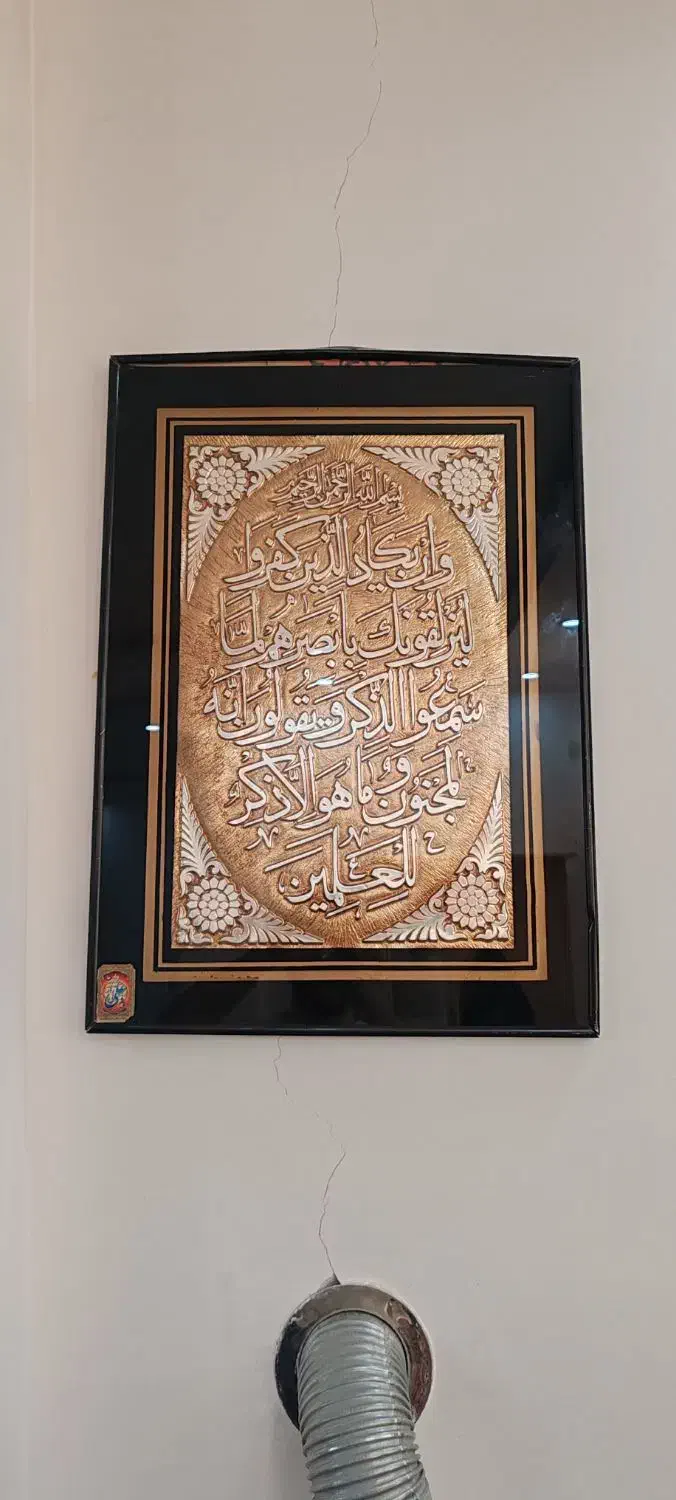 بِسْمِ اللّٰهِ الرَّحْمٰنِ الرَّحِیمِ
وَاِنْ یَکَادُ الَّذِینَ کَفَرُوا
لَیُزْلِقُونَكَ بِاَبْصَرِهِمْ لَمَّا
سَمِعُوا الذِّکْرَ وَیَقُولُونَ اِنَّهُ
لَمَجْنُونٌ وَمَا هُوَ اِلَّا ذِکْرٌ
لِلْعَلَمِینَ